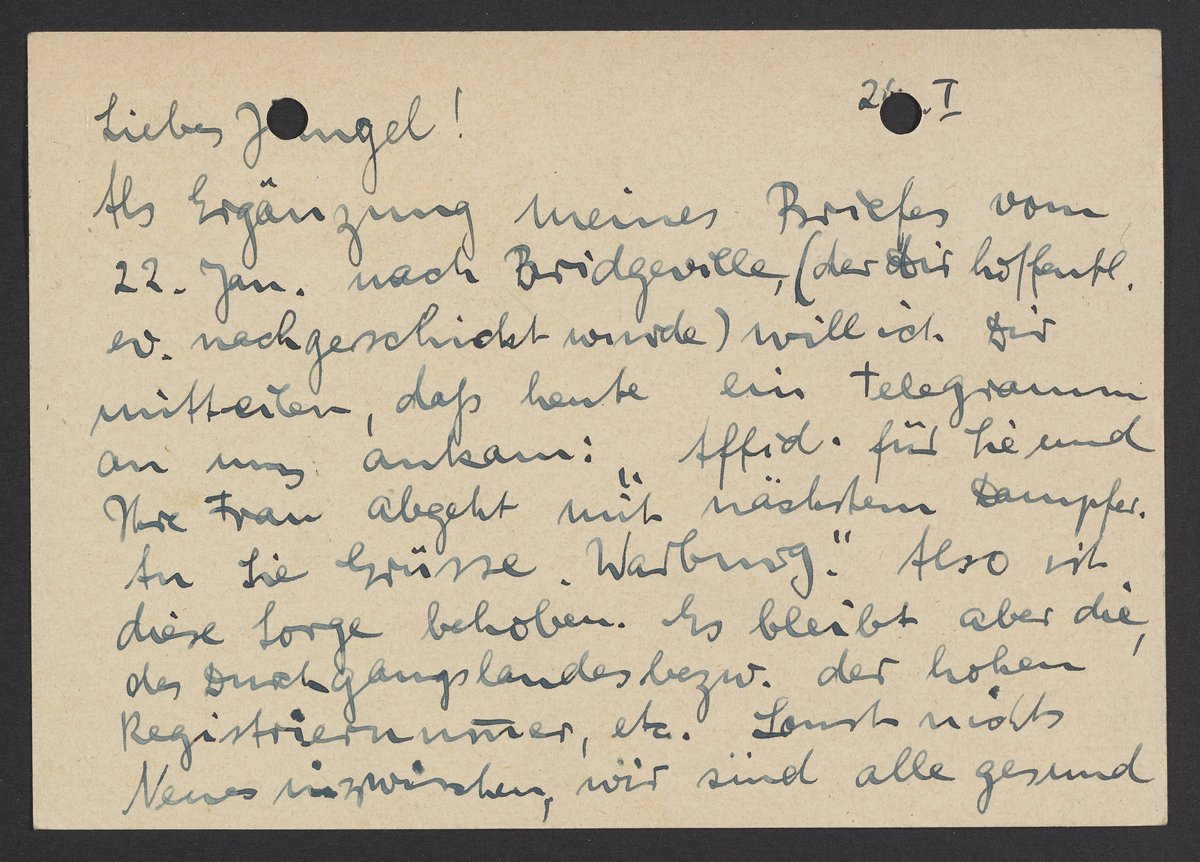 26. I
Liebes Jungel!
Als Ergänzung meines Briefes vom
22. Jan. nach Bridgeville, (der Dir hoffentl.
ev. nachgeschickt wurde) will ich Dir
mitteilen, daß heute ein Telegramm
an uns ankam: „Affid. für Sie und
Ihre Frau abgeht mit nächstem Dampfer.
An Sie Grüsse. Warburg." Also ist
diese Sorge behoben. Es bleibt aber die,
des Durchgangslandes bezw. der hohen
Registriernum̄er, etc. Sonst nichts
Neues inzwischen, wir sind alle gesund